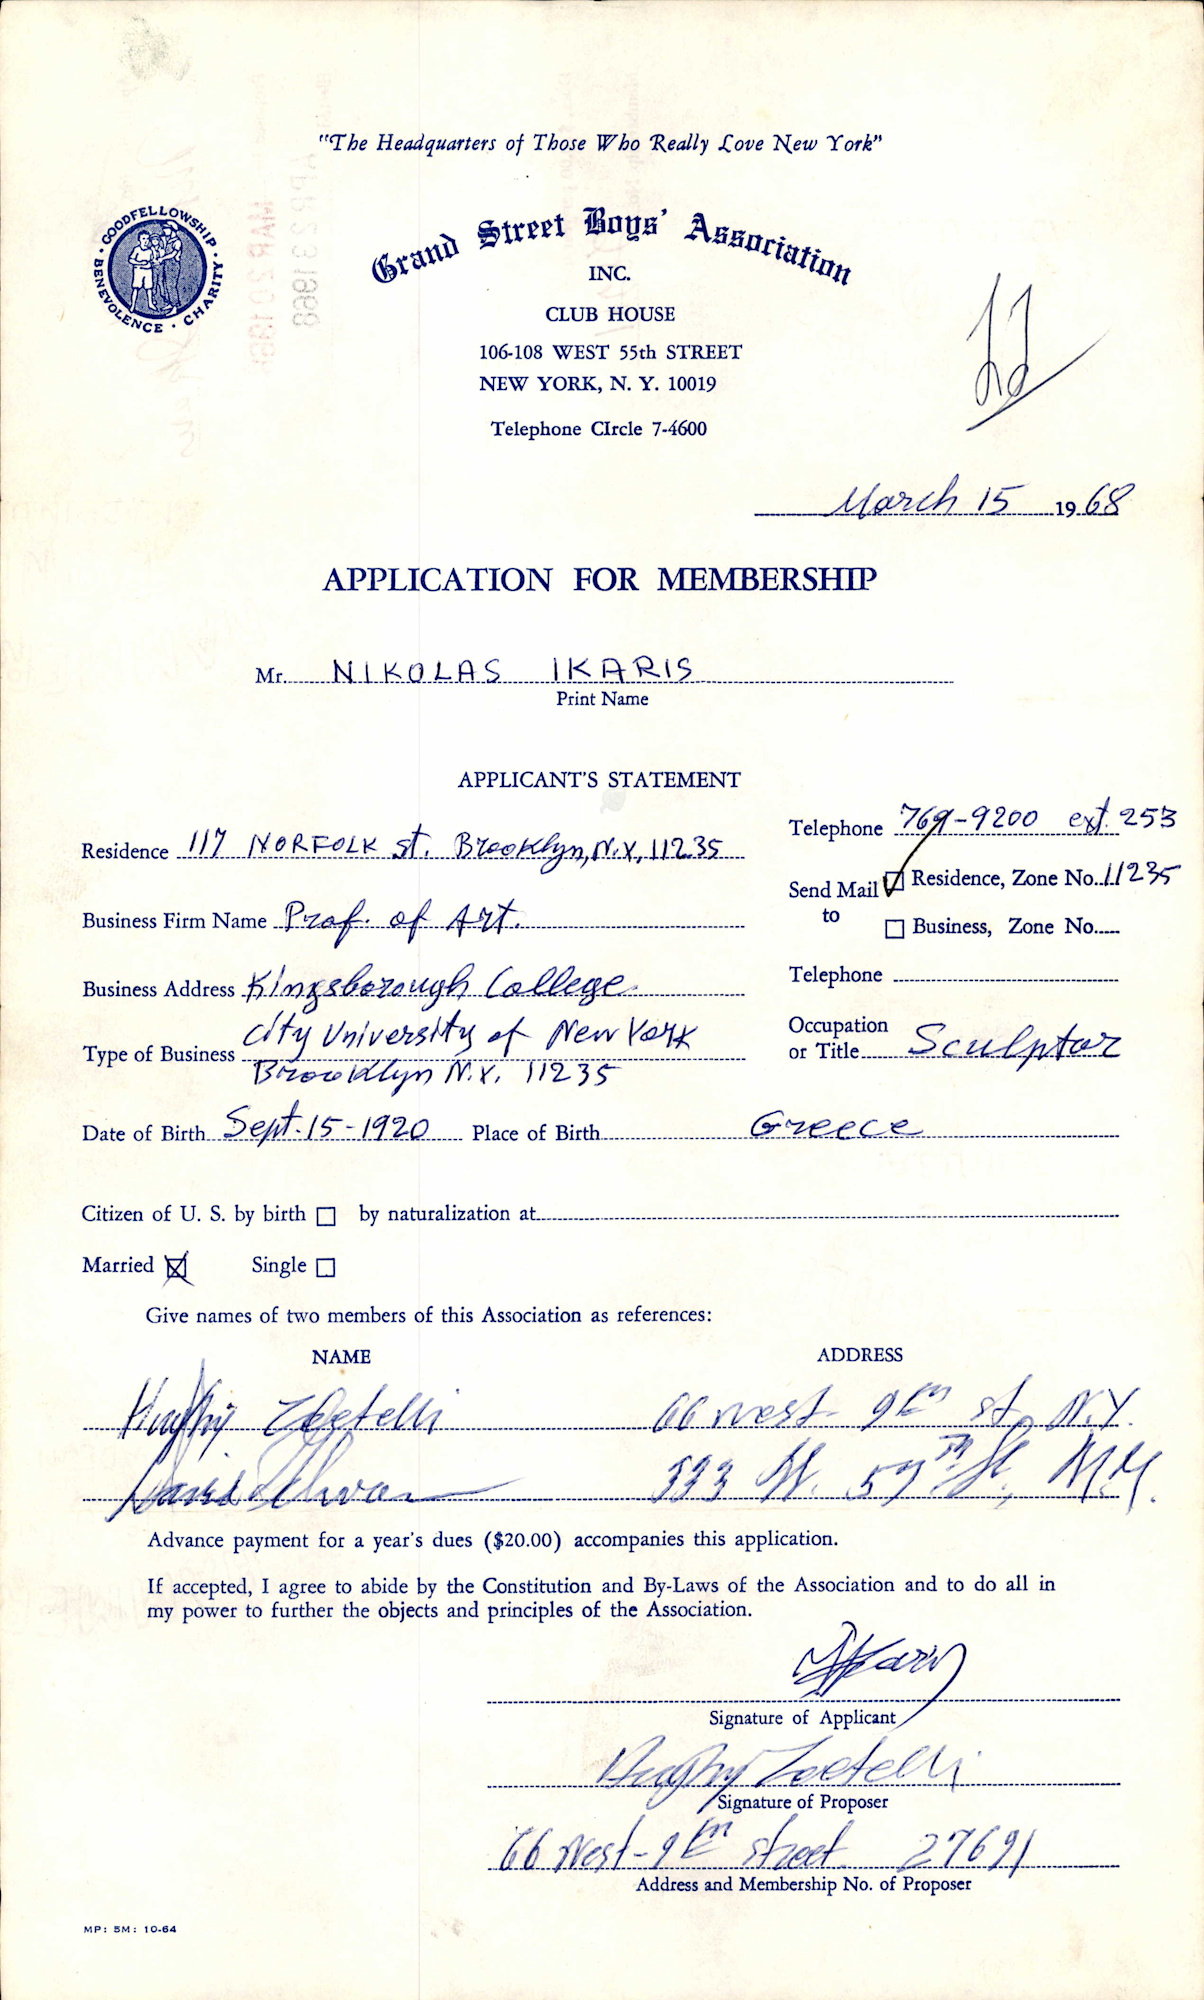 "The Headquarters of Those Who Really Love New York"
GOODFELLOWSHIP · CHARITY · BENEVOLENCE ·
Grand Street Boys' Association
INC.
CLUB HOUSE
106-108 WEST 55th STREET
NEW YORK, N. Y. 10019
Telephone CIrcle 7-4600
March 15 1968
APPLICATION FOR MEMBERSHIP
Mr. NIKOLAS IKARIS
Print Name
APPLICANT'S STATEMENT
Telephone 769-9200 ext. 253
Residence 117 NORFOLK st. Brooklyn, N.Y, 11235
Send Mail to Residence, Zone No. 11235
Business, Zone No.
Business Firm Name Prof. of Art.
Business Address Kingsborough College
Telephone
City University of New York
Type of Business
Brooklyn N.Y. 11235
Occupation or Title Sculptor
Date of Birth Sept. 15-1920 Place of Birth Greece
Citizen of U. S. by birth by naturalization at
Married Single
Give names of two members of this Association as references:
NAME ADDRESS
66 West 9th st. N.Y.
David 57th St., N.Y.
Advance payment for a year's dues ($20.00) accompanies this application.
If accepted, I agree to abide by the Constitution and By-Laws of the Association and to do all in
my power to further the objects and principles of the Association.
Signature of Applicant
Signature of Proposer
66 West-9th street 27691
Address and Membership No. of Proposer
MP: 5M: 10-64